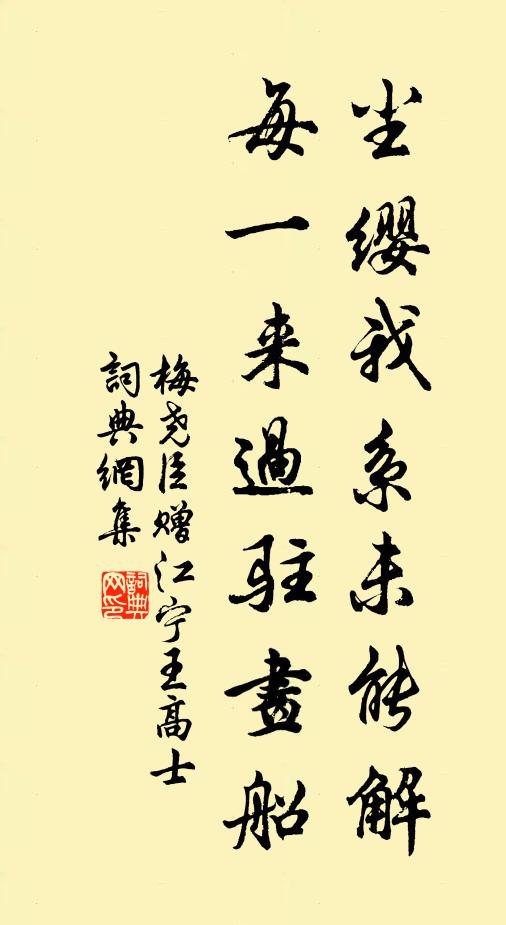 尘缨我系未能解
每一来過驻畫船
梅尧臣赠江宁王高士
詞典網集
詞典网印